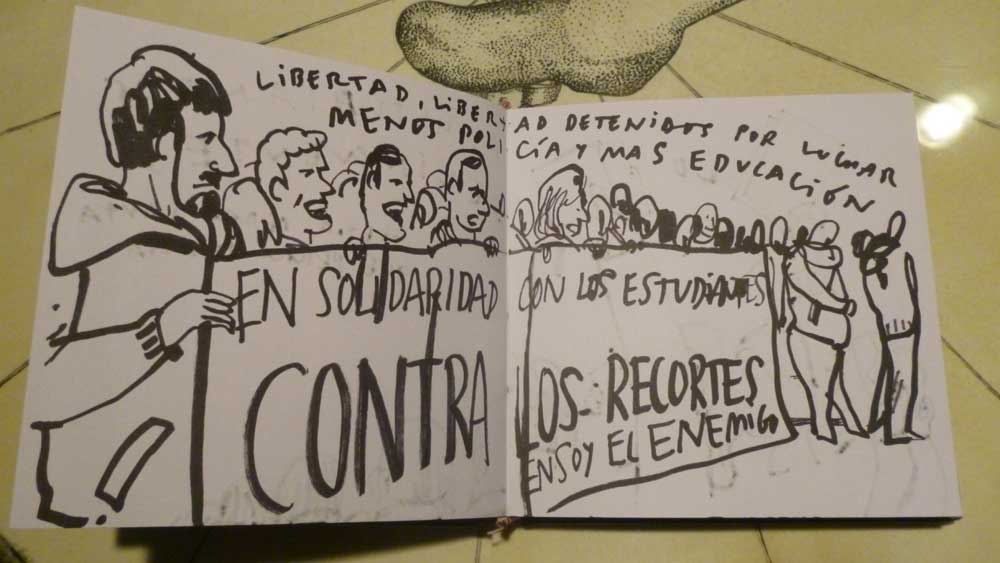 LIBERTAD, LIBERTAD DETENIDOS POR LUCHAR
MENOS POLICÍA Y MAS EDUCACIÓN
EN SOLIDARIDAD CON LOS ESTUDIANTES
CONTRA LOS RECORTES
ENSOY EL ENEMIGO